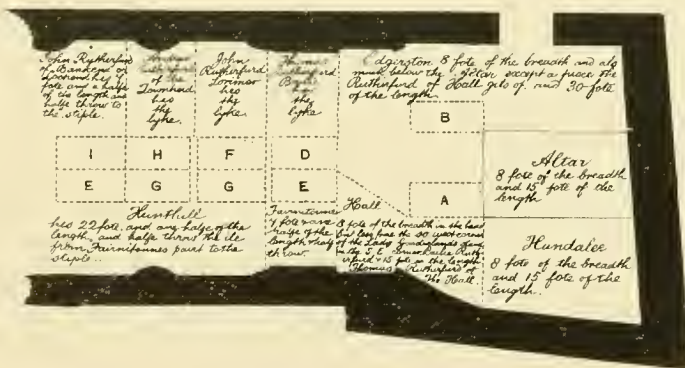 John Rutherfurd
of Bankend or
Loorend hes 7
fote and a halfe
of the length and
halfe throw to
the stiple.
Andrew
of the
Townhead
hes
the
lyke.
John
Rutherfurd
Lorimer
hes
the
lyke.
Thomas
Rutherfurd
hes
the
lyke
Edgerston 8 fote of the breadth and als
much below the Altar except a piece the
Rutherfurd of Hall gets of. and 30 fote
of the length.
B
I
H
F
D
E
G
G
E
A
Altar
8 fote of the breadth
and 15 fote of the
length
Hunthill
hes 22 fote, and any halfe of the
length, and halfe throw the ile
from Fairnitones pairt to the
stiple..
Fairnitones
7 fote and ane
halfe of the
length & half
throw.
Hall
8 fote of the breadth in the head
of the Lady
15 fote in the length
Thomas Rutherfurd of
the Hall.
Hundalee
8 fote of the breadth
and 15 fote of the
length.